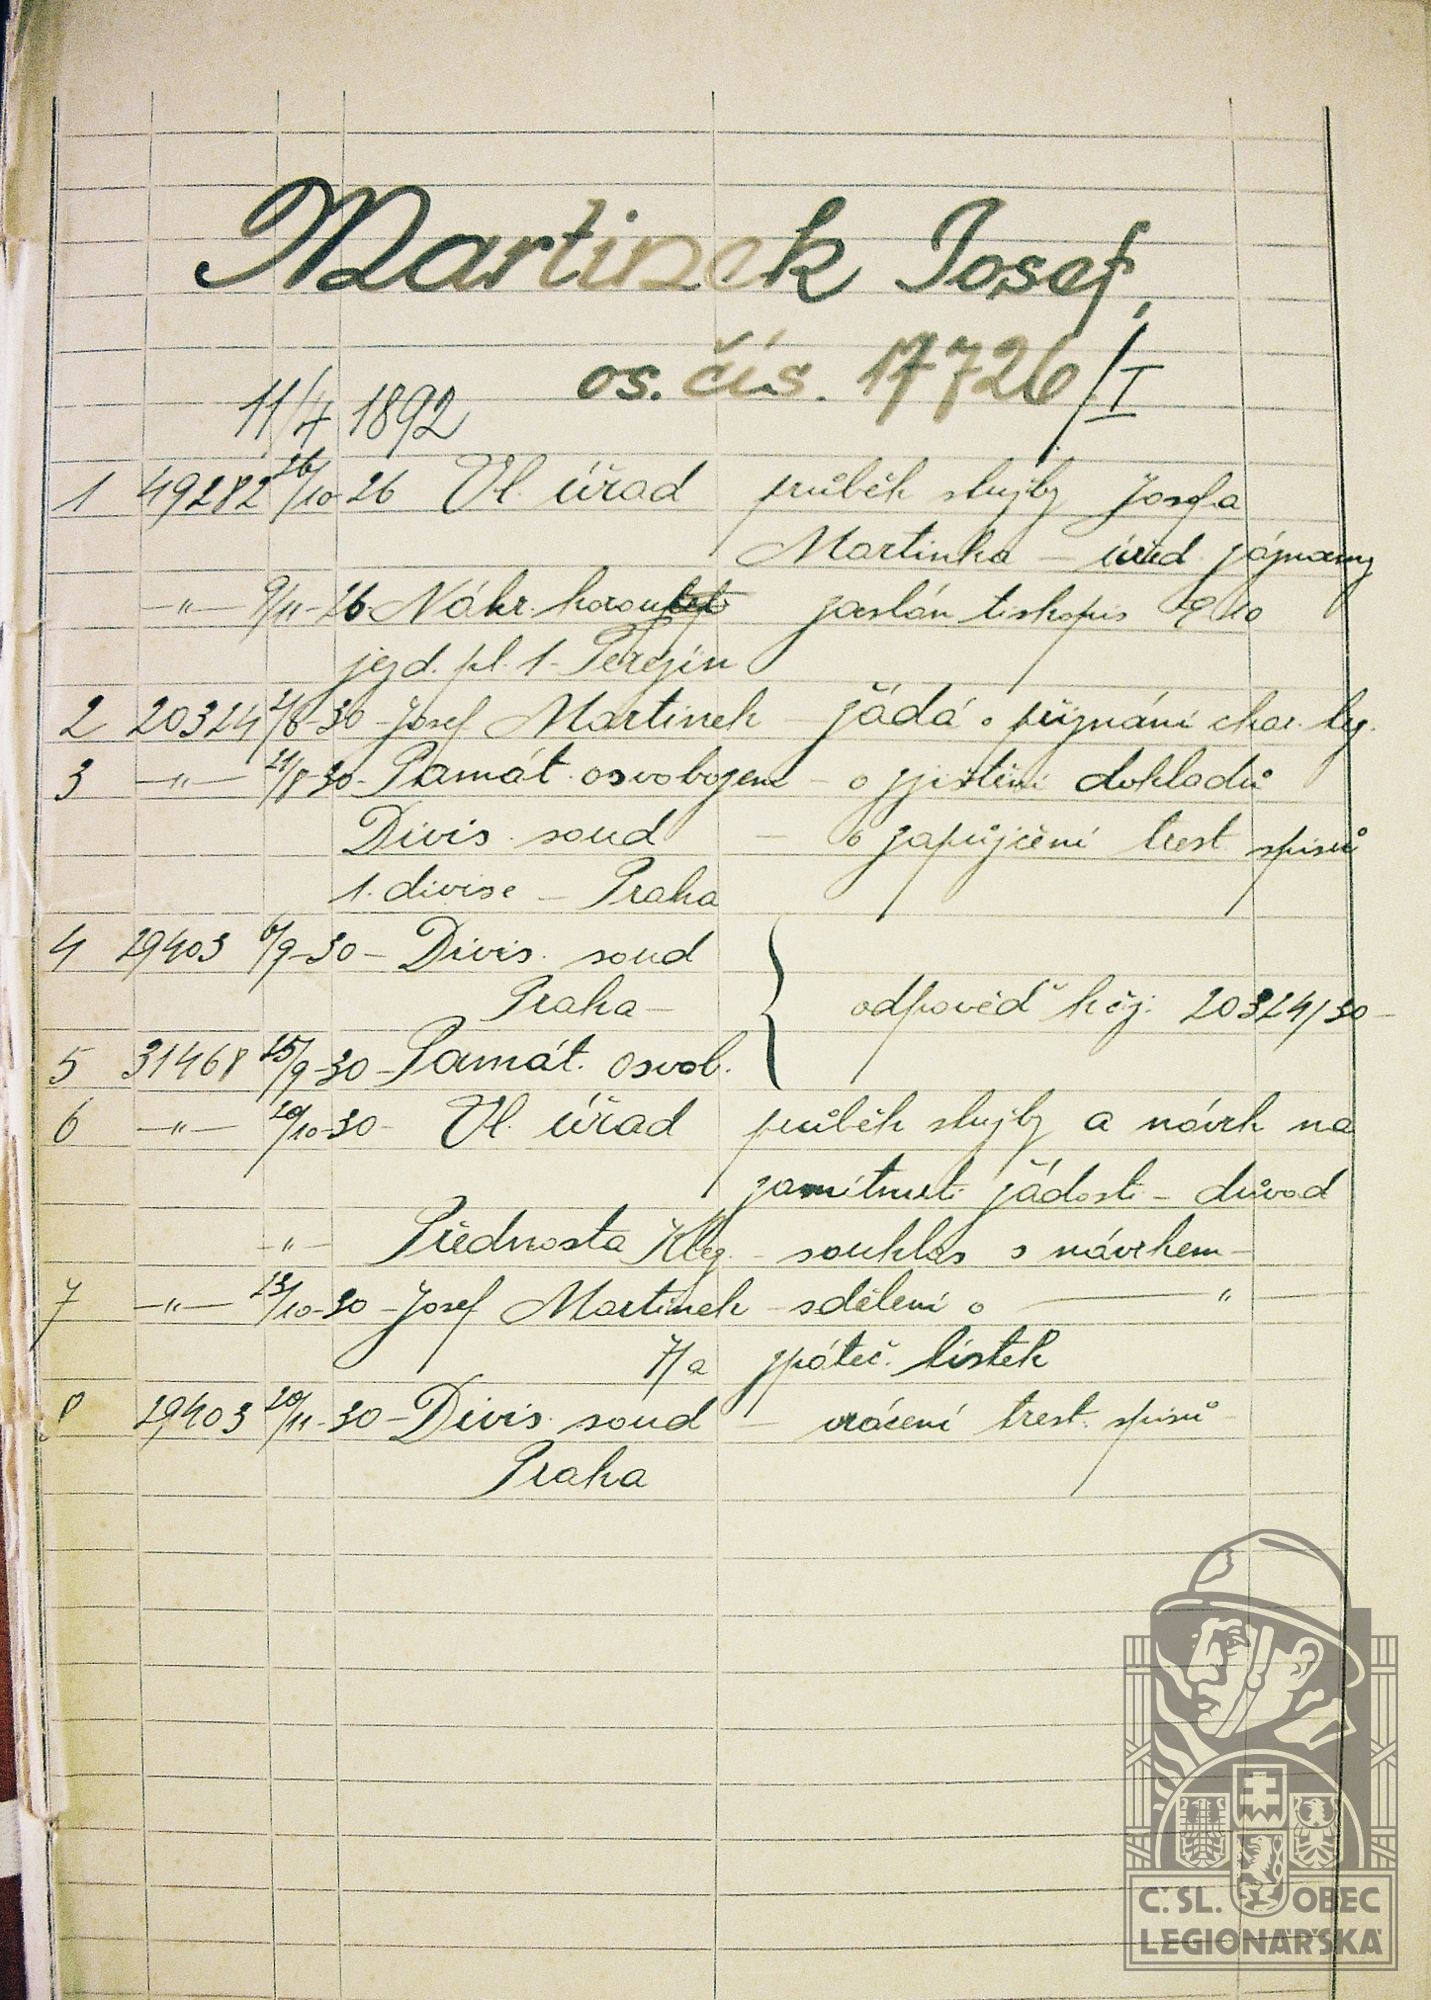 Martinek Josef,
os. čís. 17726/I
11/4 1892
1 49282 26/10-26 Vl. úřad průběh služby Josefa
Martinka – úřed. záznamy
—"— 9/11-26 Náhr. horou
jezd. pl. 1 - Terezín zaslán tiskopis 9 10
2 20324 -30 - Josef Martinek – žádá o přiznání char. leg.
3 —"— 21/8-30 - Památ. osvobození – o zjištění dokladů
Divis. soud – o zapůjčení trest. spisů
1. divise – Praha
4 29403 6/9-30 – Divis. soud
Praha – odpověď k čj. 20324/30 –
5 31468 25/9-30 – Památ. osvob.
6 —"— 20/10-30 - Vl. úřad průběh služby a návrh na
zamítnutí žádosti – důvod
–"– Přednosta Kleg. – souhlas s návrhem –
7 —"— 23/10-30 – Josef Martinek – sdělení o ——— "
7/a zpáteč. lístek
8 29403 20/11-30 – Divis. soud – vrácení trest. spisů –
Praha
Č. SL. OBEC
LEGIONÁŘSKÁ